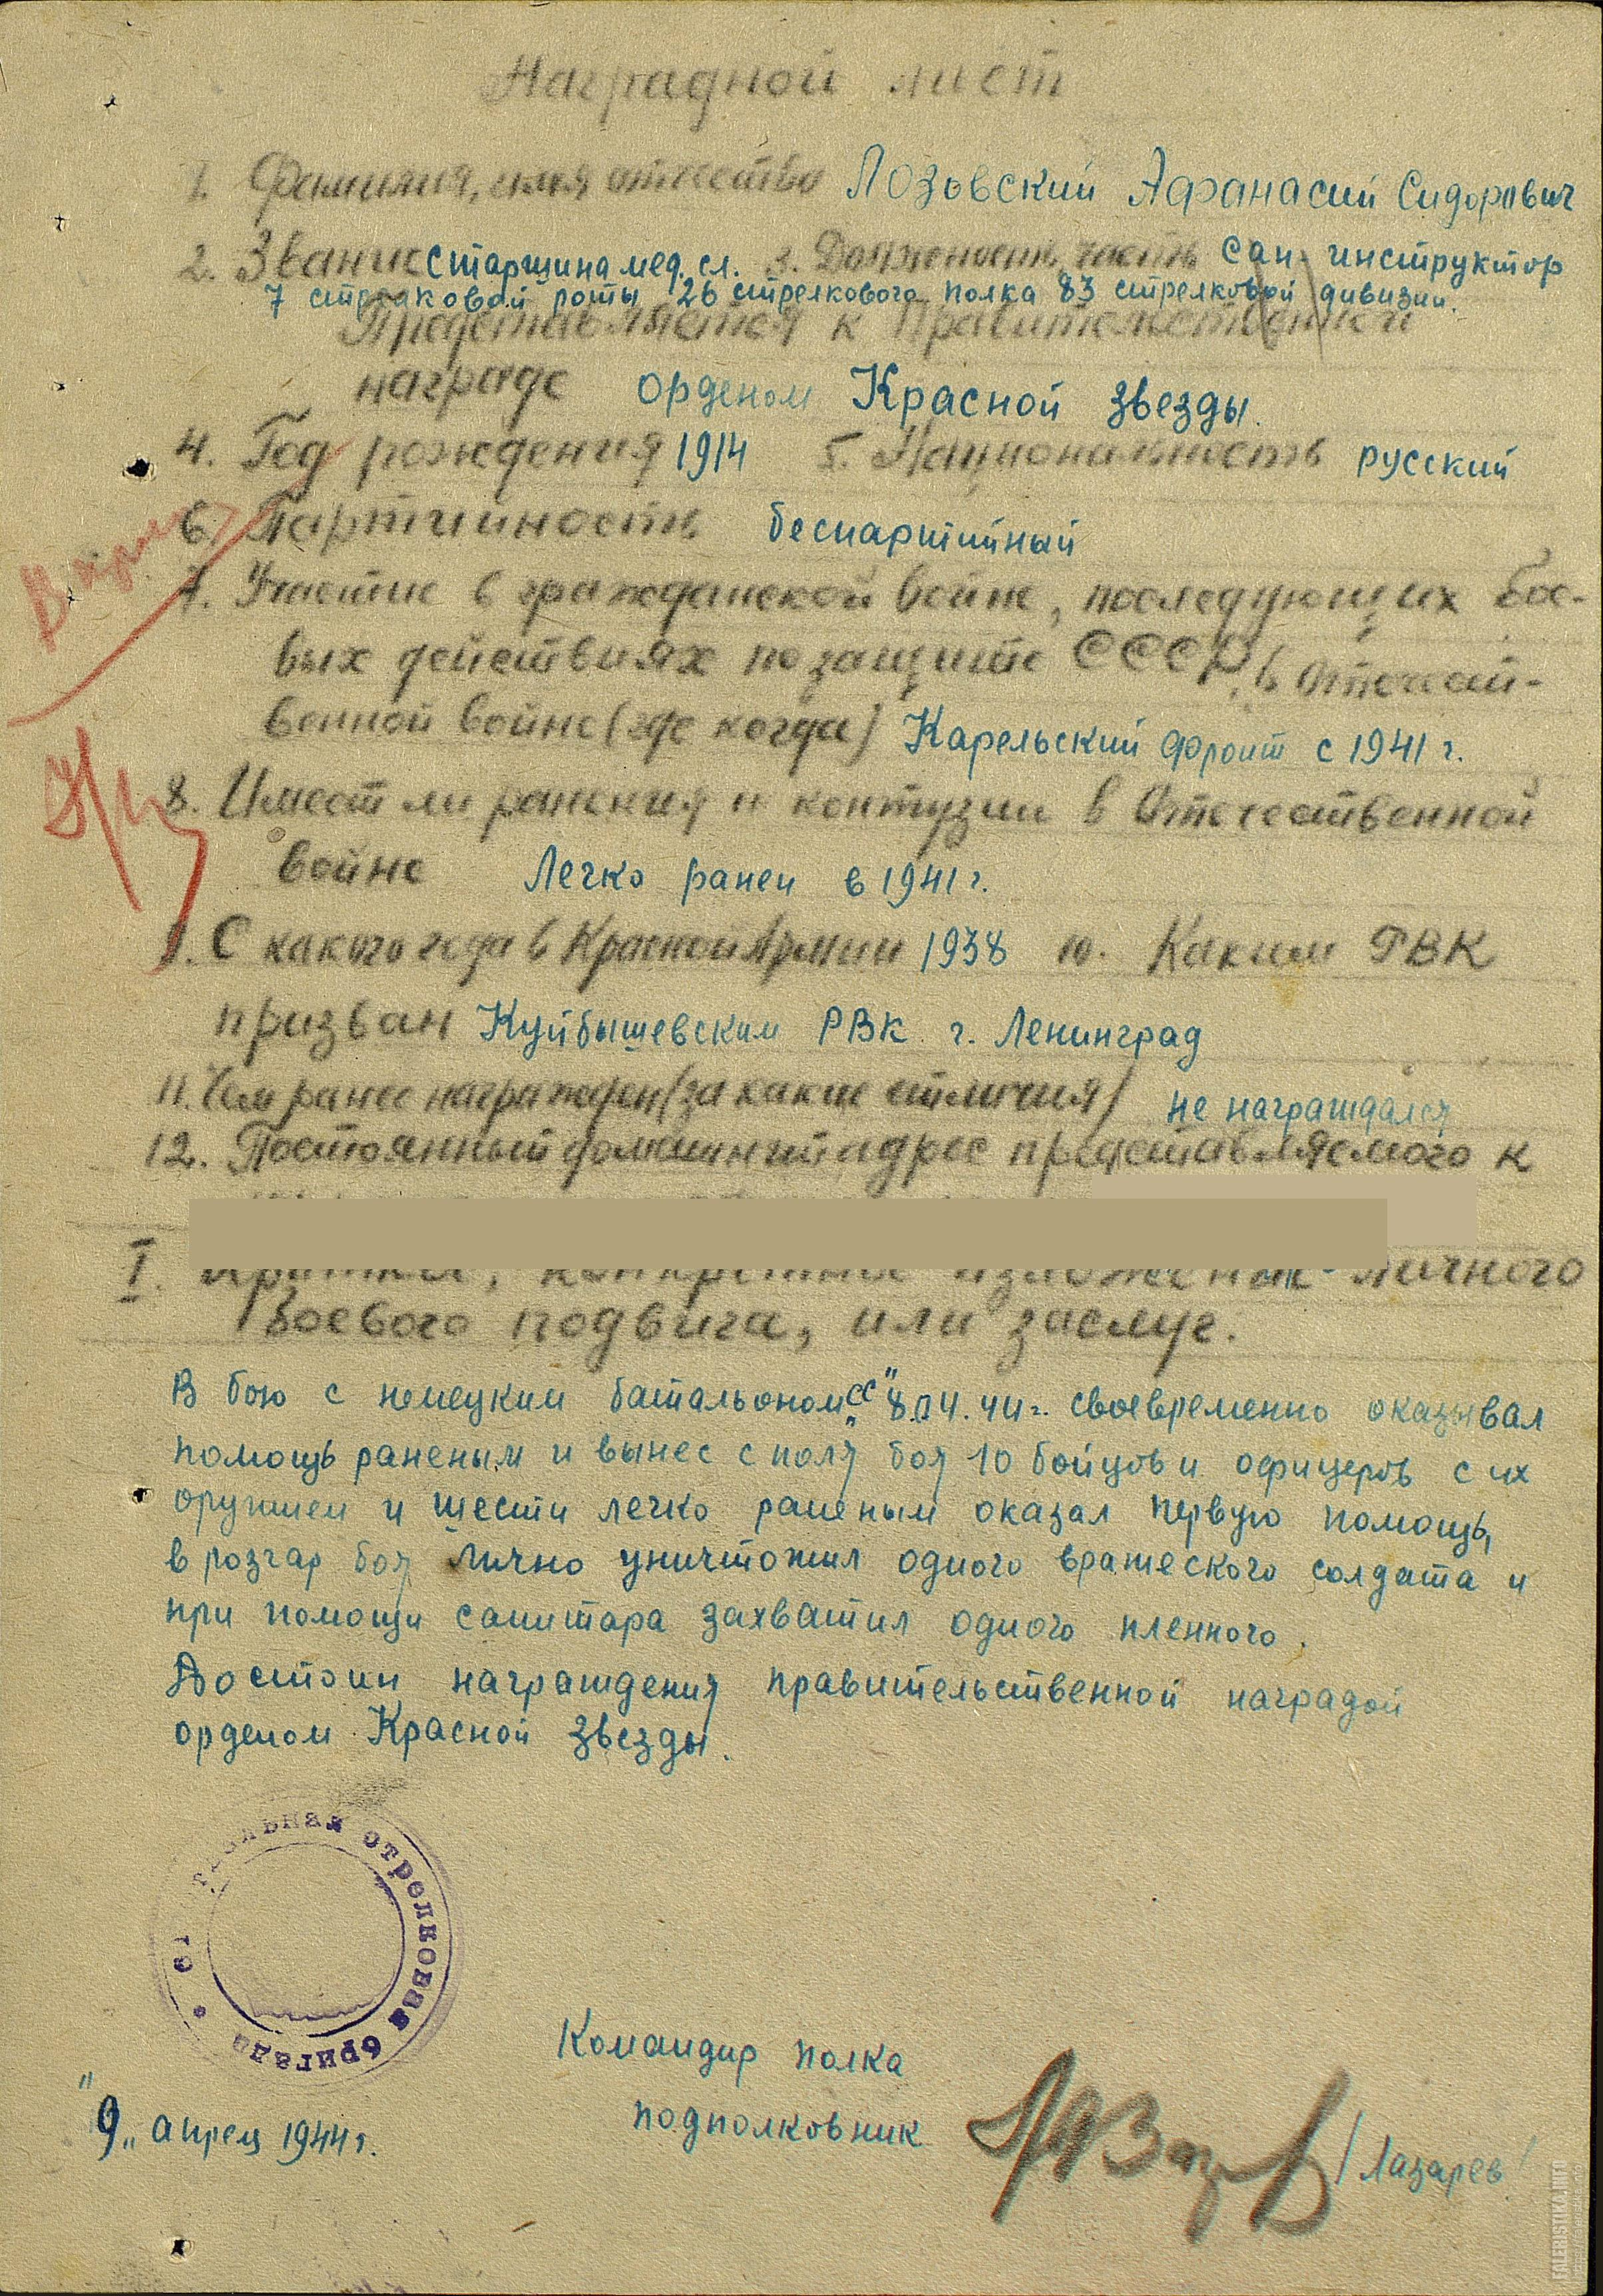 Наградной лист
1. Фамилия, имя отчество Лозовский Афанасий Сидорович
2. Звание старшина мед. сл. 3. Должность, часть сан. инструктор
7 стрелковой роты 26 стрелкового полка 83 стрелковой дивизии.
Представляется к Правительственной
награде орденом Красной звезды.
4. Год рождения 1914 5. Национальность русский
6. Партийность беспартийный
7. Участие в гражданской войне, последующих бое-
вых действиях по защите СССР, в Отечест-
венной войне (где когда) Карельский фронт с 1941 г.
8. Имеет ли ранения и контузии в Отечественной
войне Легко ранен в 1941 г.
9. С какого года в Красной Армии 1938 10. Каким РВК
призван Куйбышевским РВК г. Ленинград
11. Чем ранее награжден (за какие отличия) не награждался
12. Постоянный домашний адрес представляемого к
I. Краткое, конкретное изложение личного
боевого подвига, или заслуг.
В бою с немецким батальоном „СС" 8.04.44 г. своевременно оказывал
помощь раненым и вынес с поля боя 10 бойцов и офицеров с их
оружием и шести легко раненым оказал первую помощь,
в розгар боя лично уничтожил одного вражеского солдата и
при помощи санитара захватил одного пленного.
Достоин награждения правительственной наградой
орденом Красной звезды.
стрелковая бригада
Командир полка
подполковник /Лазарев/
"9„ апрель 1944 г.
FALERISTIKA.INFO